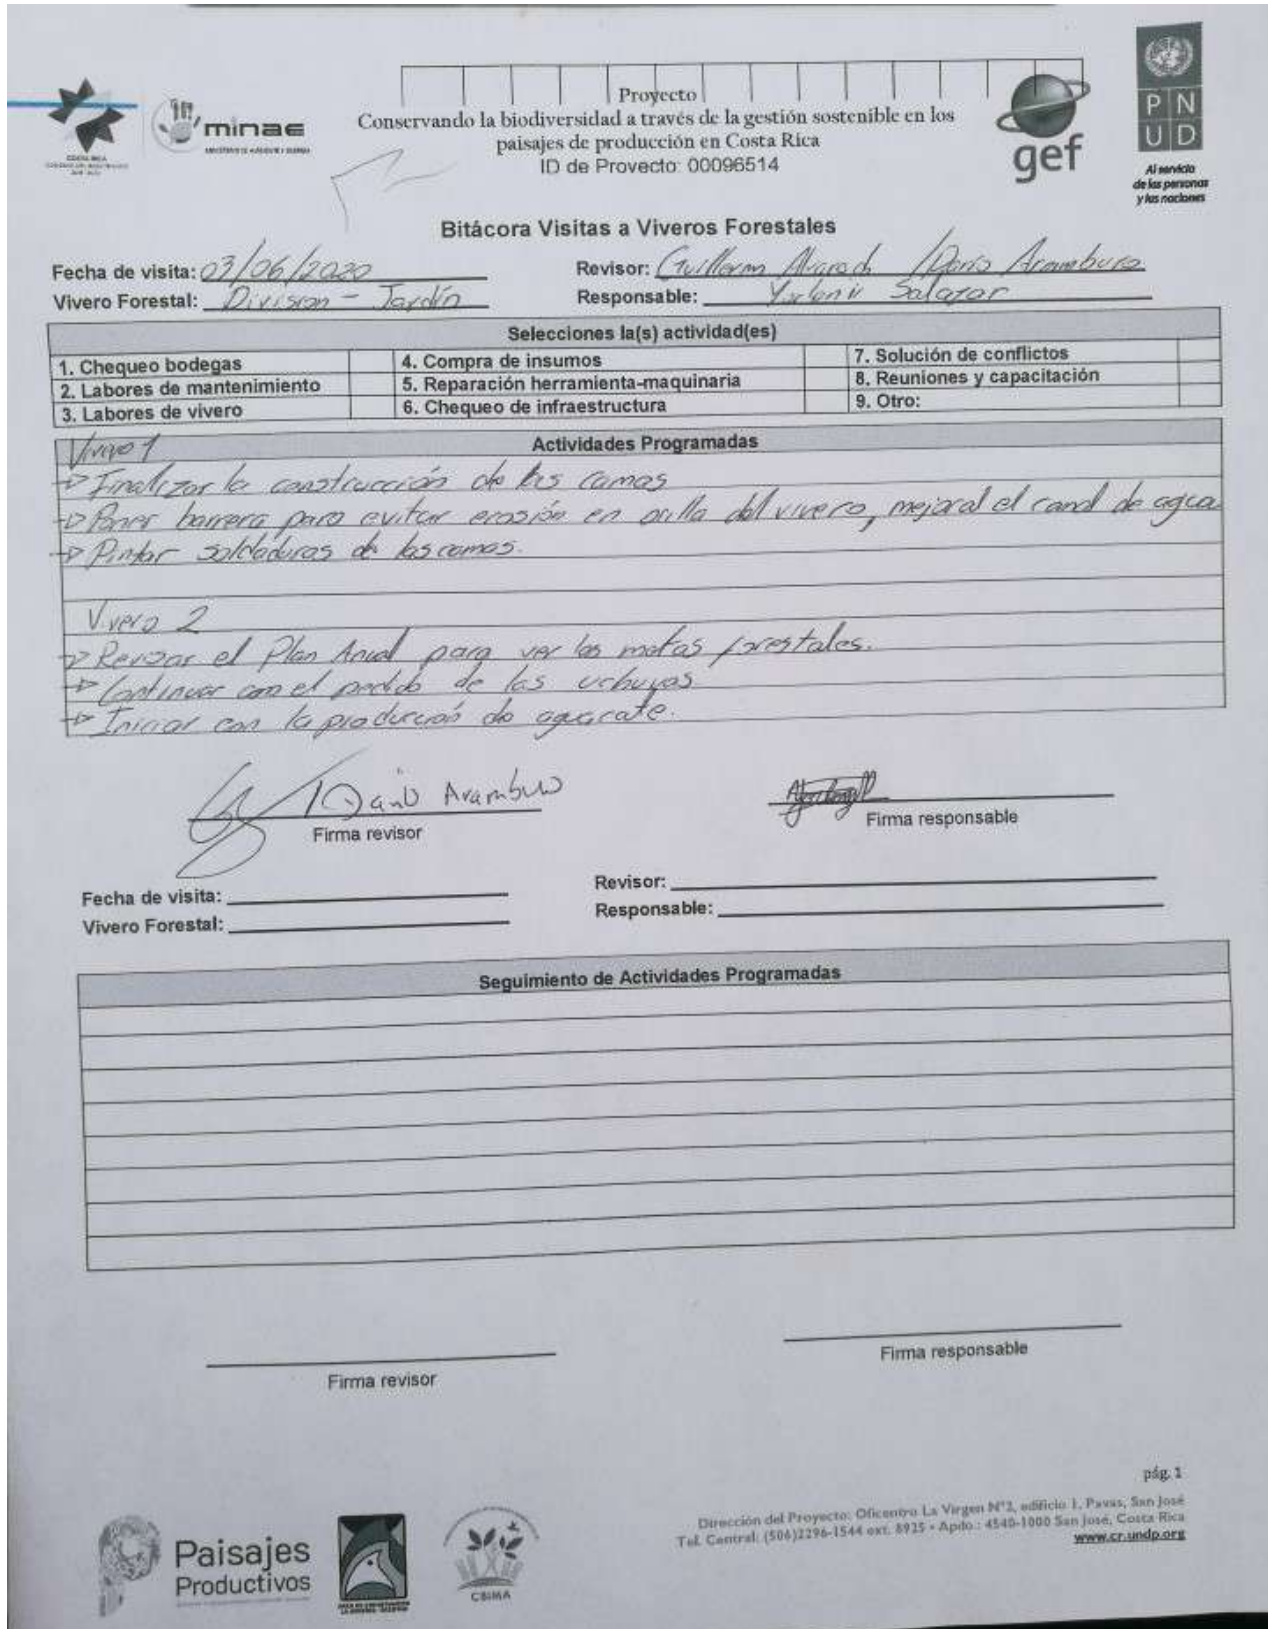 Proyecto
Conservando la biodiversidad a través de la gestión sostenible en los
paisajes de producción en Costa Rica
ID de Proyecto: 00096514
minae
gef
P N
U D
Al servicio
de las personas
y las naciones
Bitácora Visitas a Viveros Forestales
Fecha de visita: 03/06/2020
Revisor: Guillermo Alvarado /Darío Aramburo
Vivero Forestal: Division - Jardín
Responsable: Salazar
Selecciones la(s) actividad(es)
1. Chequeo bodegas 4. Compra de insumos 7. Solución de conflictos
2. Labores de mantenimiento 5. Reparación herramienta-maquinaria 8. Reuniones y capacitación
3. Labores de vivero 6. Chequeo de infraestructura 9. Otro:
Actividades Programadas
Vivero 1
→ Finalizar la construcción de las camas
→ Poner barrera para evitar erosión en orilla del vivero, mejorar el canal de agua
→ Pintar soldaduras de las camas.
Vivero 2
→ Revisar el Plan Anual para ver las matas forestales.
→ Continuar con el pedido de las uchuvas
→ Iniciar con la producción de aguacate.
Darío Aramburo
Firma revisor
Firma responsable
Fecha de visita:
Revisor:
Vivero Forestal:
Responsable:
Seguimiento de Actividades Programadas
Firma revisor
Firma responsable
pág. 1
Dirección del Proyecto: Oficentro La Virgen N°2, edificio 1, Pavas, San José
Tel. Central: (506)2296-1544 ext. 8925 • Apdo.: 4540-1000 San José, Costa Rica
www.cr.undp.org
Paisajes
Productivos
CBIMA